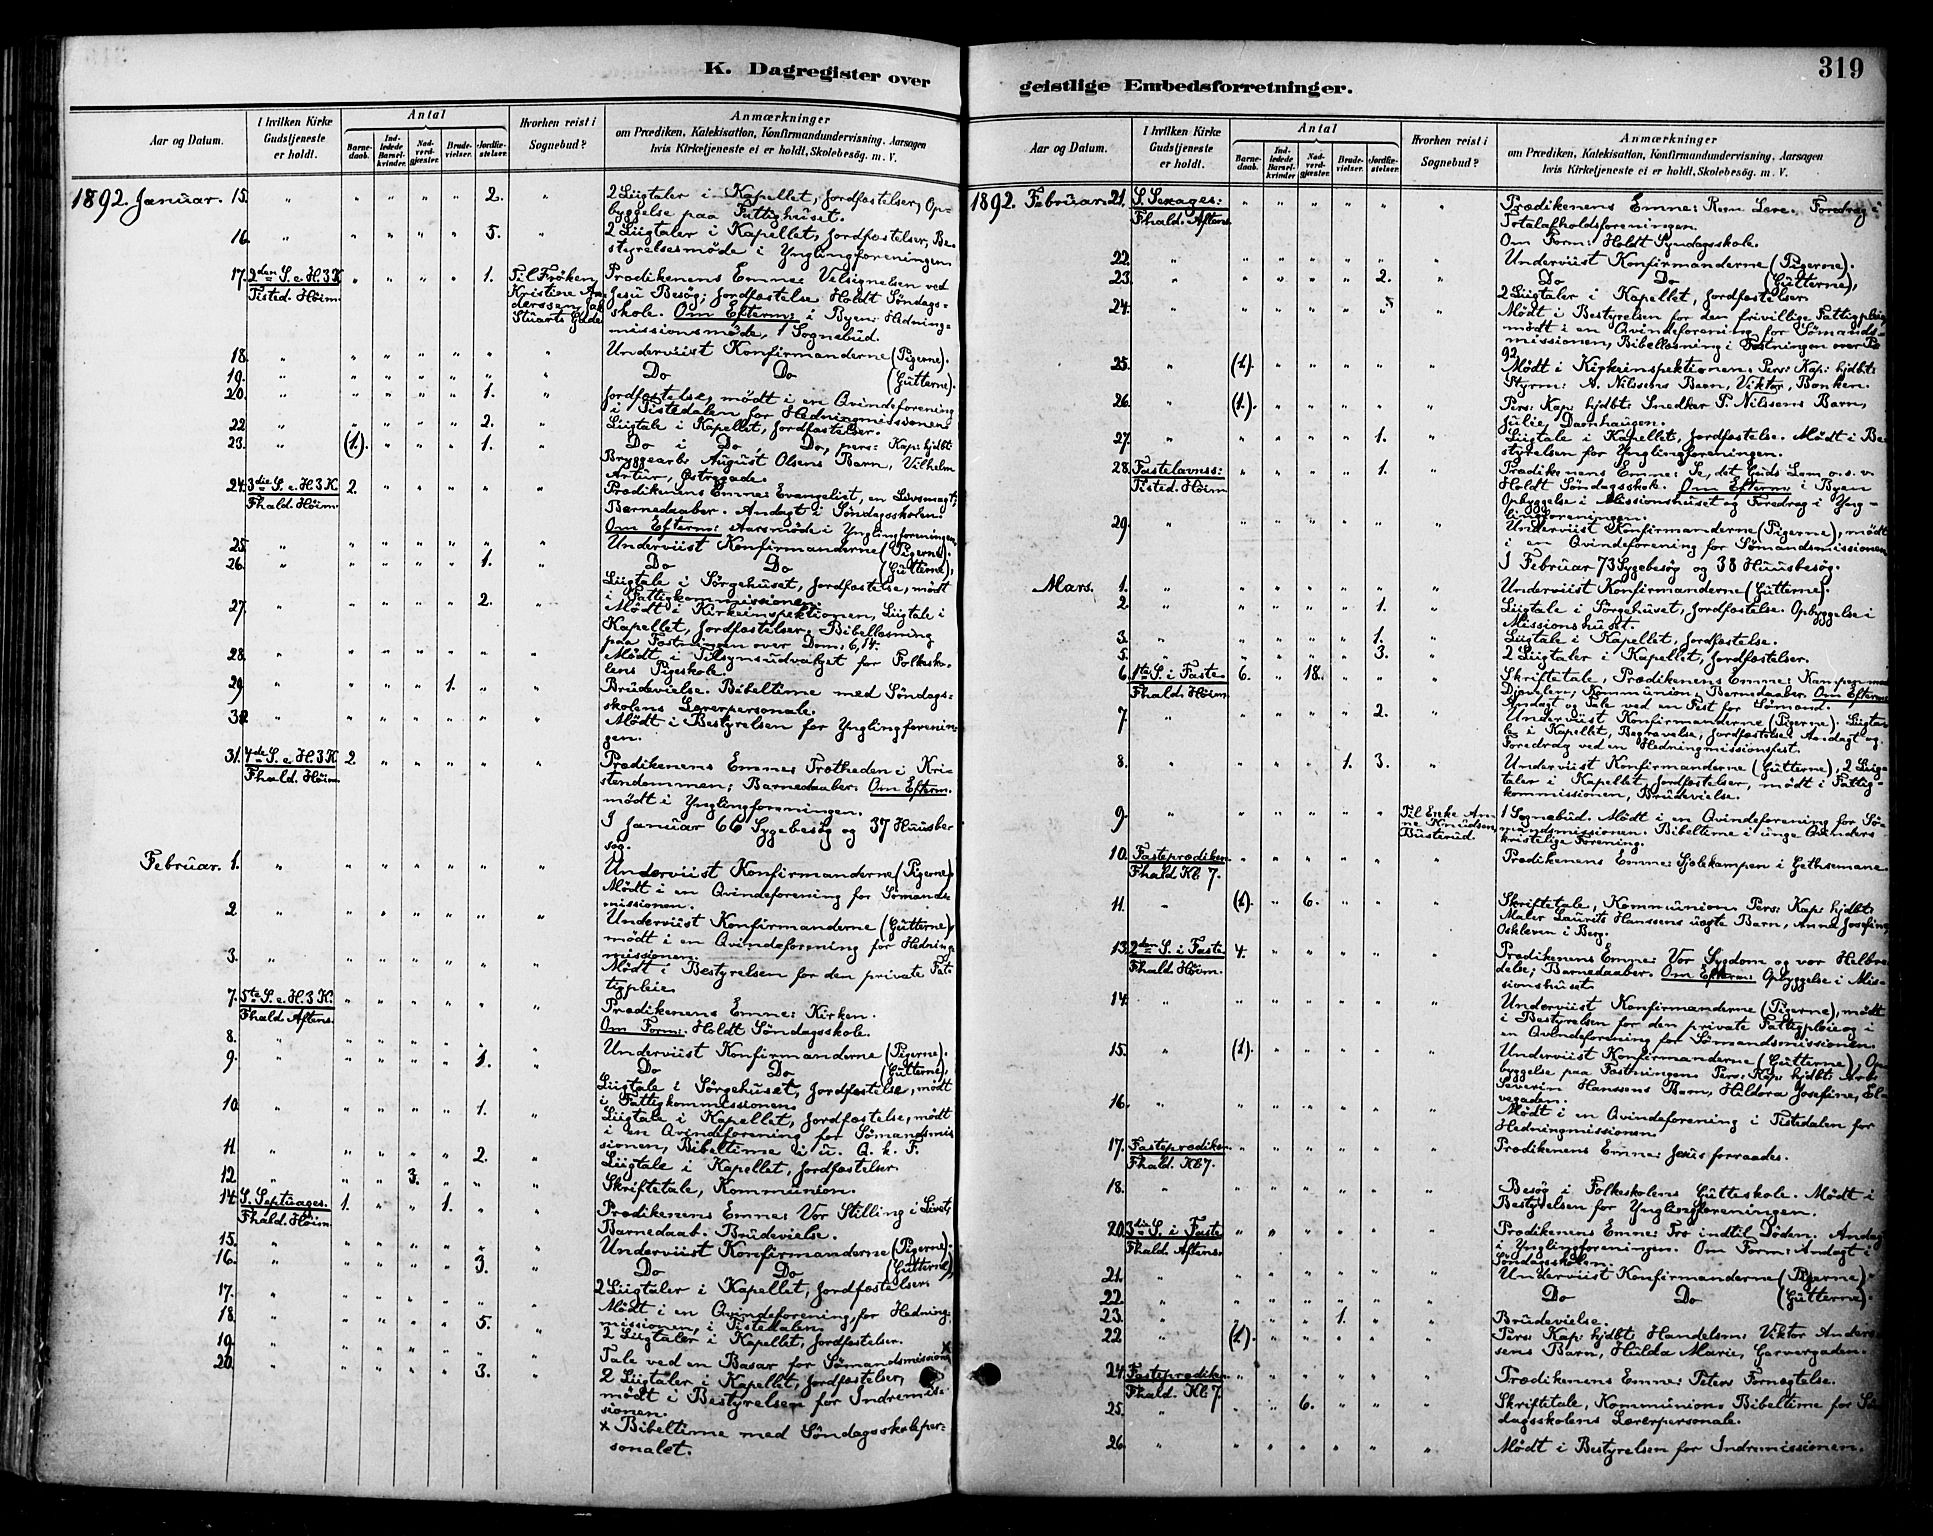 K. Dagregister over
Aar og Datum.
I hvilken Kirke Gudstjeneste er holdt.
Antal
Barnedaab.
Indledede Barselkvinder.
Nadverdgjæster.
Brudevielser.
Jordfæstelser.
Hvorhen reist i Sognebud?
Anmærkninger
om Prædiken, Katekisation, Konfirmandundervisning, Aarsagen
hvis Kirketjeneste ei er holdt, Skolebesög. m. V.
1892. Januar. 15. " " " " " 2. " 2 Liigtaler i Kapellet, Jordfæstelser, Op-
byggelse paa Fattighuset.
16. " " " " " 5. " 2 Liigtaler i Kapellet, Jordfæstelser, Be-
styrelsesmöde i Ynglingforeningen
17. 2den S. e. H. 3 K. " " " " 1. Til Fröken Prædikenens Emne: Velsignelsen ved
Tisted. Höim. Kristiane An- Jesu Besög; Jordfæstelse. Holdt Söndags-
derssen, Stuarts Gade skole. Om Efterm: i Byen: Hednings-
missionsmöde, 1 Sognebud.
18. " " " " " " " Underviist Konfirmanderne (Pigerne).
19. " " " " " " " Do Do (Gutterne).
20. " " " " " 1. " Jordfæstelse, mödt i en Qvindeforening
i Tistedalen for Hedningmissionen.
22 " " " " " 2. " Liigtale i Kapellet, Jordfæstelser.
23. " (1). " " " 1. " Do i Do, Do, pers: Kap: hjdbt:
Bryggearb. August Olsens Barn, Vilhelm
Artur, Östregade.
24. 3die S. e. H. 3 K. 2. " " " " " Prædikenens Emne: Evangeliet, en Livsmagt;
Fhald. Höim. Barnedaaber. Andagt i Söndagsskolen.
Om Efterm: Aarsmöde i Ynglingforeningen
25. " " " " " " " Underviist Konfirmanderne (Pigerne).
26. " " " " " 1. " Do Do (Gutterne),
Liigtale i Sörgehuset, Jordfæstelse, mödt
i Fattigkommissionen.
27. " " " " " 2. " Mödt i Kirkeinspektionen, Liigtale i
Kapellet, Jordfæstelser, Bibellæsning
paa Fæstningen over Dom. 6,14.
28. " " " " " " " Mödt i Tilsynsudvalget for Folkesko-
lens Pigeskole.
29. " " " " 1. " " Brudevielse. Bibeltime med Söndags-
skolens Lærerpersonale.
30. " " " " " " " Mödt i Bestyrelsen for Ynglingforenin-
gen.
31. 4de S. e. H. 3 K. 2. " " " " " Prædikenens Emne: Trætheden i Kri-
Fhald. Höim. stendommen; Barnedaaber. Om Efterm.
mödt i Ynglingforeningen.
I Januar 66 Sygebesög og 37 Huusbe-
sög.
Februar. 1. " " " " " " " Underviist Konfirmanderne (Pigerne)
Mödt i en Qvindeforening for Sömands-
missionen.
2. " " " " " " " Underviist Konfirmanderne (Gutterne)
mödt i en Qvindeforening for Hedning-
missionen.
3. " " " " " " " Mödt i Bestyrelsen for den private Fat-
tigpleie.
7. 5te S. e. H. 3 K. " " " " " " Prædikenens Emne: Kirken.
Fhald. Aftens. Om Form: Holdt Söndagsskole.
8. " " " " " " " Underviist Konfirmanderne (Pigerne).
9. " " " " " 1. " Do Do (Gutterne),
Liigtale i Sörgehuset, Jordfæstelse, mödt
i Fattigkommissionen
10. " " " " " 1. " Liigtale i Kapellet, Jordfæstelse, mödt
i en Qvindeforening for Sömandsmis-
sionen, Bibeltime i u. Q. k. F.
11. " " " " " 2. " Liigtale i Kapellet, Jordfæstelser.
12 " " " 3. " " " Skriftetale, Kommunion.
14. S. Septuages. 1. " " 1. " " Prædikenens Emne: Vor Stilling i Livet;
Fhald. Höim. Barnedaab. Brudevielse.
15. " " " " " " " Underviist Konfirmanderne (Pigerne).
16. " " " " " 3. " Do Do (Gutterne),
2 Liigtaler i Kapellet, Jordfæstelser.
17. " " " " " " " Mödt i en Qvindeforening for Hedning-
missionen i Tistedalen.
18. " " " " " 5. " 2 Liigtaler i Kapellet, Jordfæstelser.
19. " " " " " " " Tale ved en Basar for Sömandsmission x
20. " " " " " 3. " 2 Liigtaler i Kapellet, Jordfæstelser,
mödt i Bestyrelsen for Indremis-
sionen.
x Bibeltime med Söndagsskoleper-
sonalet.
geistlige Embedsforretninger.
319
Aar og Datum.
I hvilken Kirke Gudstjeneste er holdt.
Antal
Barnedaab.
Indledede Barselkvinder.
Nadverdgjæster.
Brudevielser.
Jordfæstelser.
Hvorhen reist i Sognebud?
Anmærkninger
om Prædiken, Katekisation, Konfirmandundervisning, Aarsagen
hvis Kirketjeneste ei er holdt, Skolebesög. m. V.
1892. Februar. 21. S. Sexages: " " " " " " Prædikenens Emne: Foredrag i
Fhald. Aftens. Totalafholdsforeningen.
Om Form: Holdt Syndagsskole.
22. " " " " " " " Underviist Konfirmanderne (Pigerne).
23. " " " " " 2. " Do Do (Gutterne),
2 Liigtaler i Kapellet, Jordfæstelser.
24. " " " " " " " Mödt i Bestyrelsen for den frivillige Fattigpleie,
mödt i en Qvindeforening for Sömands-
missionen, Bibellæsning i Fæstningen over Ps.
92.
25. " (1). " " " " " Mödt i Kirkeinspektionen. Pers: Kap: hjdbt:
Styrm: A. Nilssens Barn, Viktor, Banken.
26. " (1.) " " " " " Pers: Kap: hjdbt: Snedker P. Nilssens Barn,
Julie, Damhaugen.
27. " " " " " 1. " Liigtale i Kapellet, Jordfæstelse. Mödt i Be-
styrelsen for Ynglingforeningen.
28. Fastelavnss: " " " " 1. " Prædikenens Emne: Se, det Guds Lam o. s. v.
Tisted. Höim. Holdt Söndagssk: Om Efterm: i Byen
Opbyggelse i Missionshuset og Foredrag i Yng-
lingforeningen.
29. " " " " " " " Underviist Konfirmanderne (Pigerne), mödt
i en Qvindeforening for Sömandsmissionen
I Februar 73 Sygebesög og 38 Huusbesög.
Mars. 1. " " " " " " " Underviist Konfirmanderne (Gutterne).
2. " " " " " 1. " Liigtale i Sörgehuset, Jordfæstelse. Opbyggelse i
Missionshuset.
3. " " " " " 1. " Liigtale i Kapellet, Jordfæstelse.
5. " " " " " 3. " 2 Liigtaler i Kapellet, Jordfæstelser.
6. 1ste S. i Faste 6. " 18. " " " Skriftetale, Prædikenens Emne: Kampen med
Fhald. Höim. Djævlen; Kommunion, Barnedaaber. Om Efterm:
Andagt og Tale ved en Fest for Sömænd.
7. " " " " " 2. " Underviist Konfirmanderne (Pigerne). Liigta-
le i Kapellet, Begravelse, Jordfæstelse. Andagt og
Foredrag ved en Hedningmissionsfest.
8. " " " " 1. 3. " Underviist Konfirmanderne (Gutterne), 2 Liig-
taler i Kapellet, Jordfæstelser, mödt i Fattig-
kommissionen, Brudevielse.
9. " " " " " " Til Enke An- 1 Sognebud. Mödt i en Qvindeforening for Sö-
ne Knudsen, mandsmissionen. Bibeltime i unge Qvinders
Busterud. kristelige Forening.
10. Fasteprædiken " " " " " " Prædikenens Emne: Sjælekampen i Gethsemane.
Fhald Kl: 7.
11. " (1). " 6. " " " Skriftetale, Kommunion. Pers: Kap: hjdbt:
Maler Laurits Hanssens uægte Barn, Anna Josefine,
Oskleven i Berg.
13. 2den S. i Faste 4. " " " " " Prædikenens Emne: Vor Sygdom og vor Helbre-
Fhald. Höim. delse; Barnedaaber. Om Efterm: Opbyggelse i Mis-
sionshuset.
14. " " " " " " " Underviist Konfirmanderne (Pigerne), mödt
i Bestyrelsen for den private Fattigpleie og i
en Qvindeforening for Sömandsmissionen.
15. " (1). " " " " " Underviist Konfirmanderne (Gutterne), Op-
byggelse paa Fæstningen. Pers: Kap: hjdbt: Arb:
Severin Hanssens Barn, Hildora Josefine, El-
vegaden.
16. " " " " " " " Mödt i en Qvindeforening i Tistedalen for
Hedningmissionen
17. Fasteprædiken " " " " " " Prædikenens Emne: Jesus forraades.
Fhald. Kl: 7.
18. " " " " " " " Besög i Folkeskolens Gutteskole. Mödt i
Bestyrelsen for Ynglingforeningen.
20. 3die S. i Faste " " " " " " Prædikenens Emne: Tro indtil Döden. Andagt
Fhald Aftens. i Ynglingforeningen. Om Form: Andagt i
Söndagsskolen.
21. " " " " " " " Underviist Konfirmanderne (Pigerne).
22. " " " " " " " Do Do (Gutterne).
23. " " " " 1. " " Brudevielse.
22 " (1) " " " " " Pers: Kap: hjdbt: Handelsm: Viktor Anders-
sens Barn, Hulda Marie, Garvergaden.
24. Fasteprædiken " " " " " " Prædikenens Emne: Peters Fornægtelse.
Fhald. Kl: 7
25. " " " 6. " " " Skriftetale, Kommunion. Bibeltime for Sön-
dagsskolens Lærerpersonale.
26. " " " " " " " Mödt i Bestyrelsen for Indremissionen.